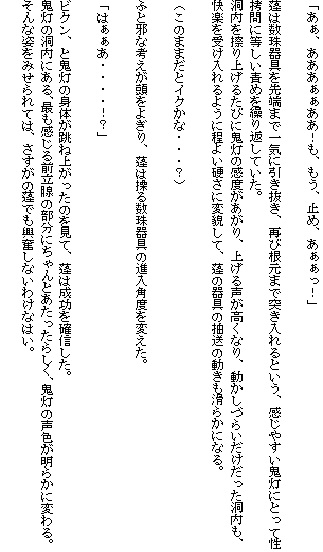 「あぁ、あああぁぁああ!も、もう、止め、あぁぁっ!」
蓬は数珠器具を先端まで一気に引き抜き、再び根元まで突き入れるという、感じやすい鬼灯にとって性
拷問に等しい責めを繰り返していた。
洞内を擦り上げるたびに鬼灯の感度があがり、上げる声が高くなり、動かしづらいだけだった洞内も、
快楽を受け入れるように程よい硬さに変貌して、蓬の器具の抽送の動きも滑らかになる。
(このままだとイクかな・・・?)
ふと邪な考えが頭をよぎり、蓬は操る数珠器具の進入角度を変えた。
「はぁぁあ・・・・!?」
ビクン、と鬼灯の身体が跳ね上がったのを見て、蓬は成功を確信した。
鬼灯の洞内にある、最も感じる前立腺の部分にちゃんとあたったらしく、鬼灯の声色が明らかに変わる。
そんな姿をみせられては、さすがの蓬でも興奮しないわけなはい。